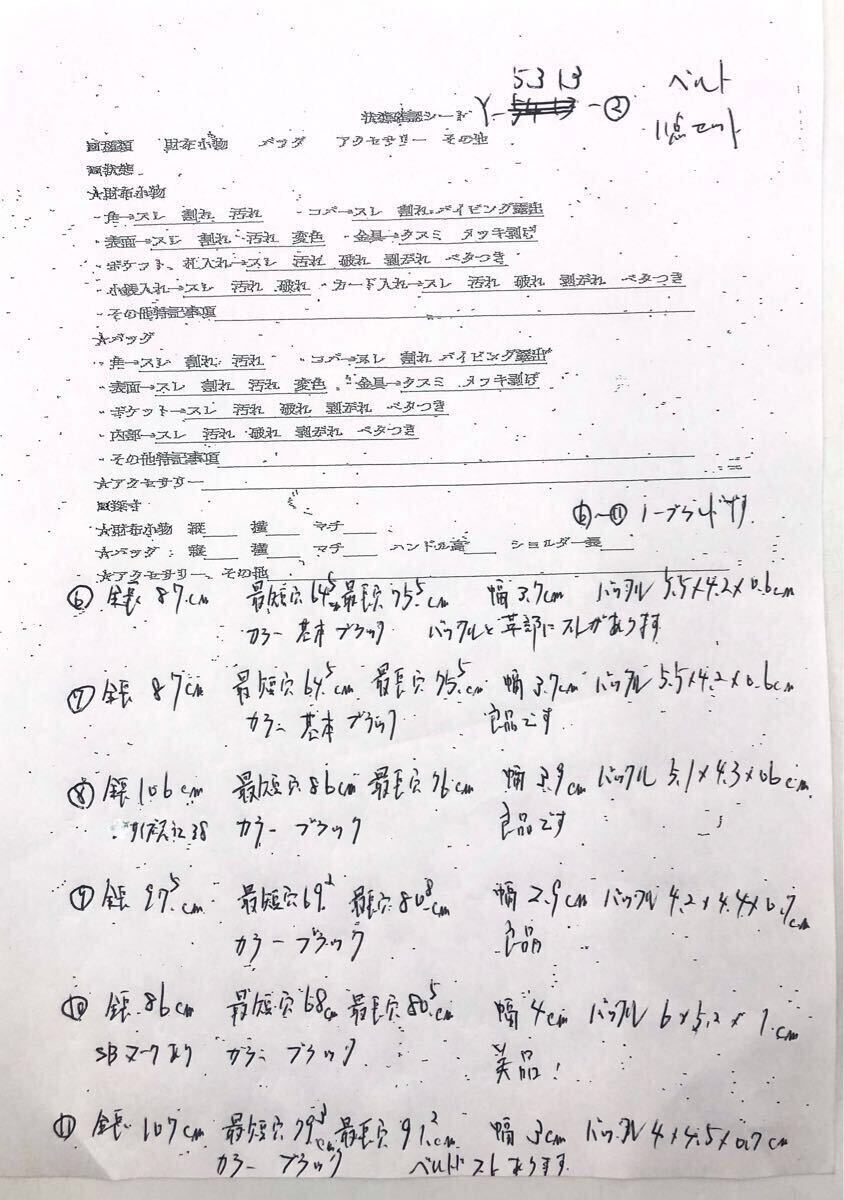 5313
ベルト
状態確認シート Y- -②
11点セット
■種類 財布小物 バッグ アクセサリー その他
■状態
★財布小物
・角→スレ 割れ 汚れ ・コバ→スレ 割れ パイピング露出
・表面→スレ 割れ 汚れ 変色 ・金具→クスミ メッキ剥げ
・ポケット、札入れ→スレ 汚れ 破れ 剥がれ ベタつき
・小銭入れ→スレ 汚れ 破れ ・カード入れ→スレ 汚れ 破れ 剥がれ ベタつき
・その他特記事項
★バッグ
・角→スレ 割れ 汚れ ・コバ→スレ 割れ パイピング露出
・表面→スレ 割れ 汚れ 変色 ・金具→クスミ メッキ剥げ
・ポケット→スレ 汚れ 破れ 剥がれ ベタつき
・内部→スレ 汚れ 破れ 剥がれ ベタつき
・その他特記事項
★アクセサリー
■採寸
⑥〜⑪ ノーブランドです
★財布小物 縦 横 マチ
★バッグ:縦 横 マチ ハンドル高 ショルダー長
★アクセサリー、その他
⑥ 全長 87cm 最短穴 64.5 最長穴 75.5cm 幅 3.7cm バックル 5.5×4.2×0.6cm
カラー 基本ブラック バックルと革部にスレがあります
⑦ 全長 87cm 最短穴 64.5cm 最長穴 75.5cm 幅 3.7cm バックル 5.5×4.2×0.6cm
カラー 基本ブラック 良品です
⑧ 全長 106cm 最短穴 86cm 最長穴 76cm 幅 3.9cm バックル 5.1×4.3×0.6cm
38 カラー ブラック 良品です
⑨ 全長 97.5cm 最短穴 69.2 最長穴 80.8cm 幅 2.9cm バックル 4.2×4.4×0.7cm
カラー ブラック 良品
⑩ 全長 86cm 最短穴 68cm 最長穴 80.5cm 幅 4cm バックル 6×5.2×1cm
SBマークあり カラー ブラック 美品!
⑪ 全長 107cm 最短穴 79.3cm 最長穴 91.2cm 幅 3cm バックル 4×4.5×0.7cm
カラー ブラック あります